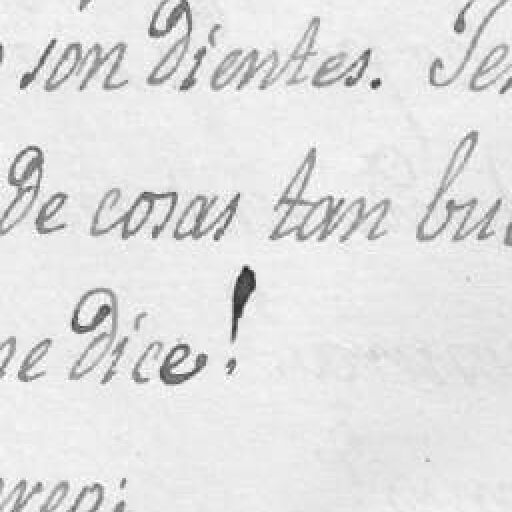 son dientes.
de cosas tan
dice!